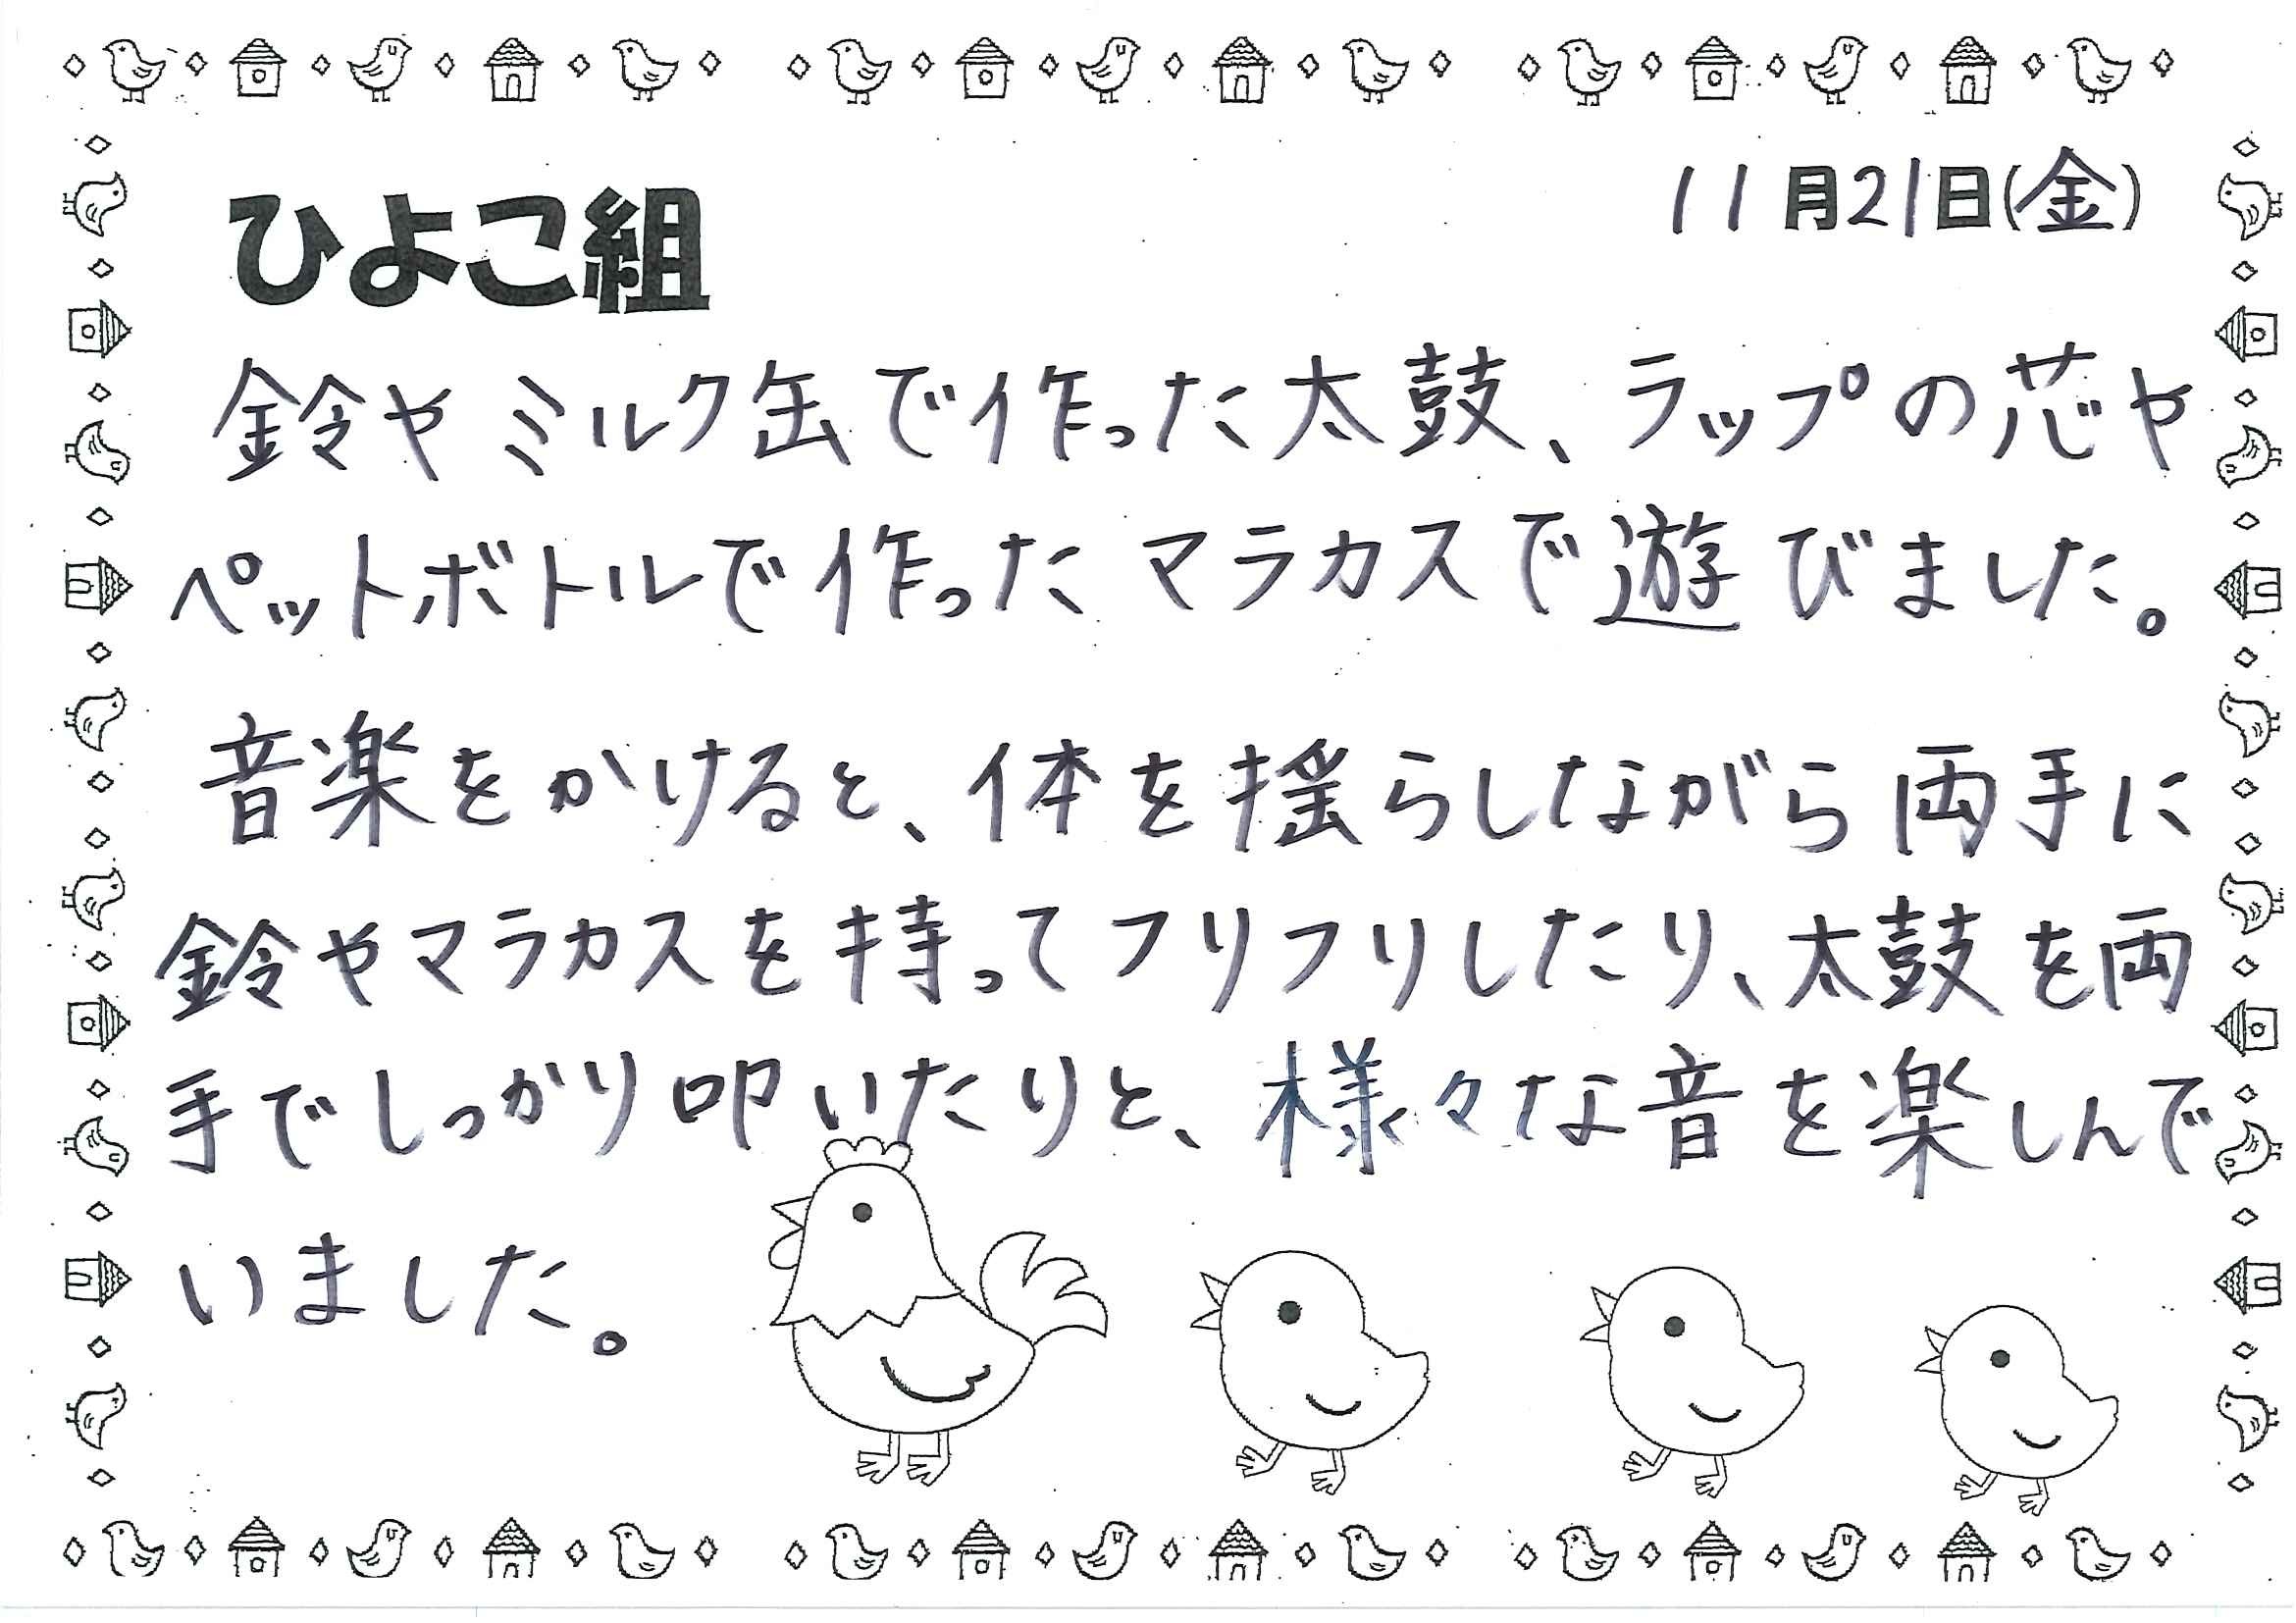 11月21日(金)
ひよこ組
鈴やミルク缶で作った太鼓、ラップの芯や
ペットボトルで作ったマラカスで遊びました。
音楽をかけると、体を揺らしながら両手に
鈴やマラカスを持ってフリフリしたり、太鼓を両
手でしっかり叩いたりと、様々な音を楽しんで
いました。